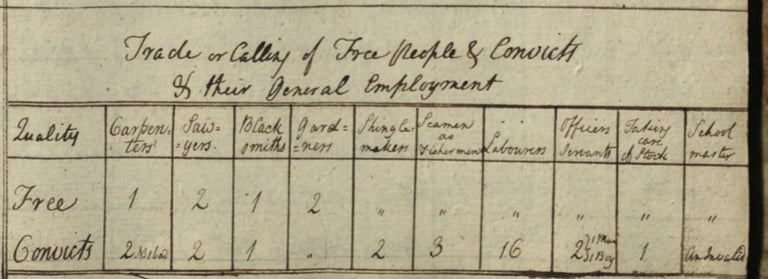 Trade or Calling of Free People & Convicts
& their General Employment
Quality Carpen-ters Saw=yers. Black smiths Gard=ners Shingle makers Seamen as Fishermen Labourers Officers Servants Taking care of Stock School master
Free 1 2 1 2 " " " " " "
Convicts 2 2 1 " 2 3 16 2 } 1 Man 1 Boy 1 An Invalid